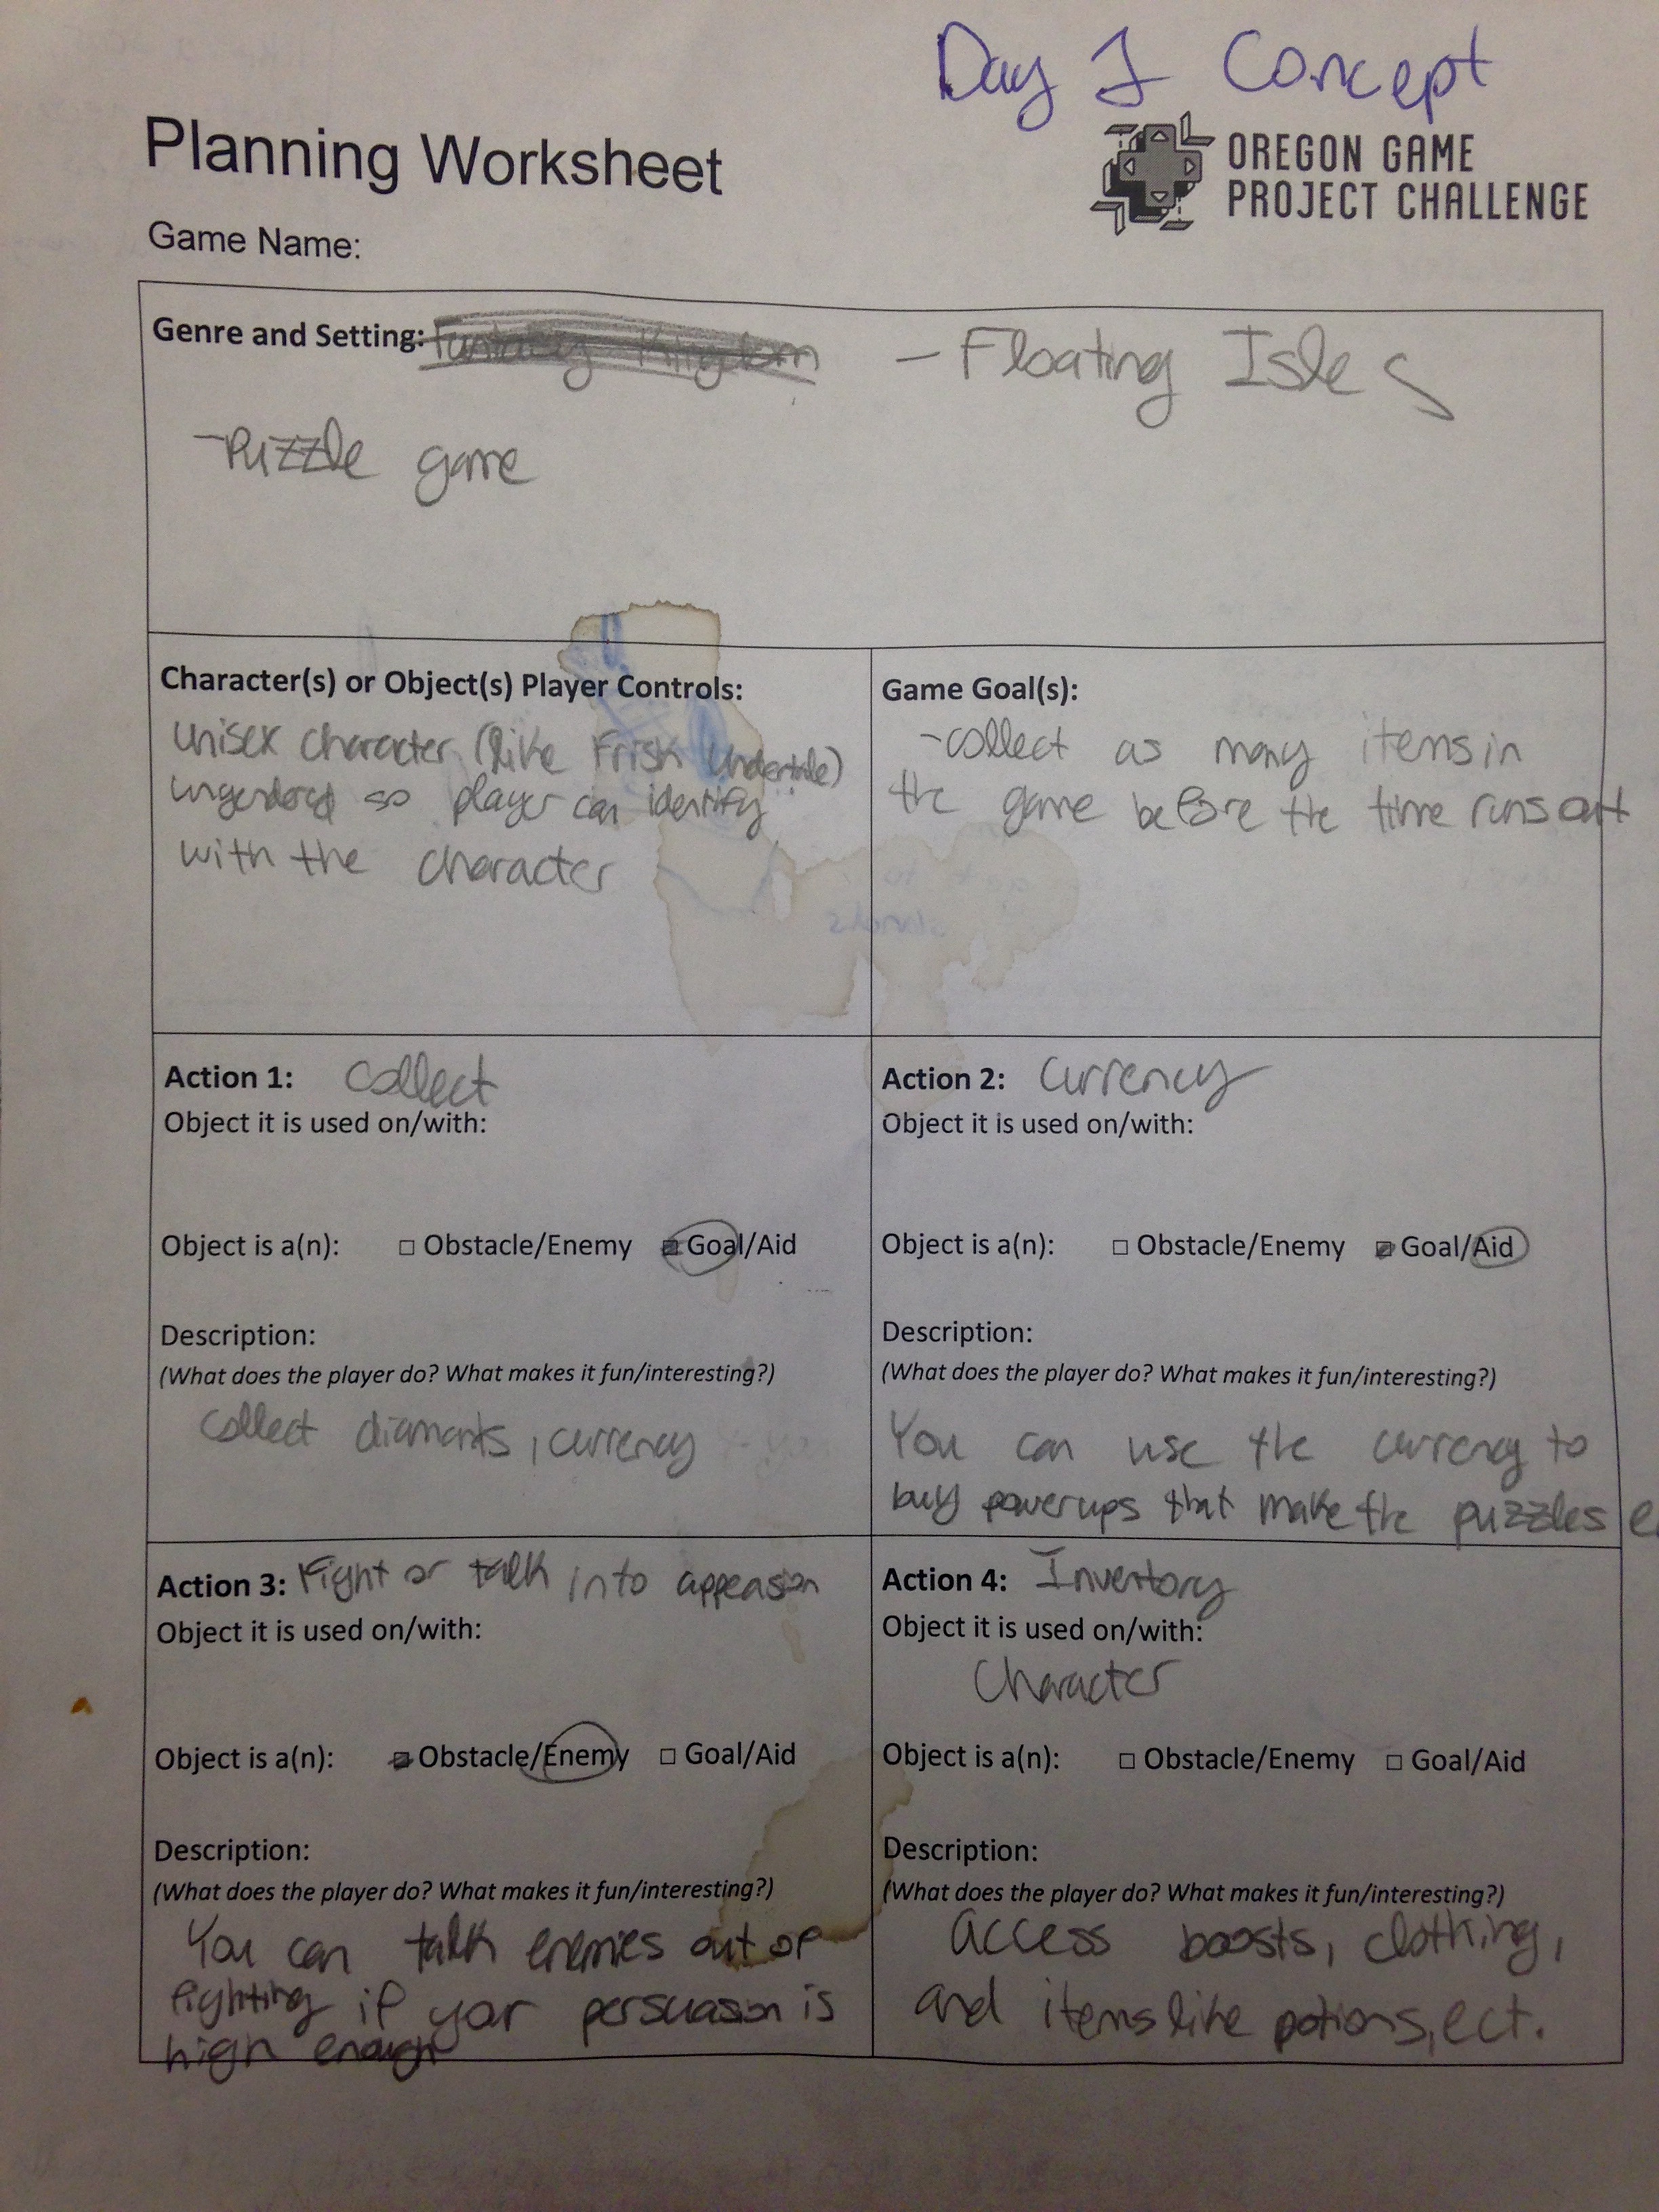 Day 1 Concept
Planning Worksheet
OREGON GAME
PROJECT CHALLENGE
Game Name:
Genre and Setting: Fantasy Kingdom - Floating Isles
-Puzzle game
Character(s) or Object(s) Player Controls:
unisex character (like Frisk Undertale)
ungendered so player can identify
with the character
Game Goal(s):
-collect as many items in
the game before the time runs out
Action 1: Collect
Object it is used on/with:
Object is a(n): □ Obstacle/Enemy ■ Goal/Aid
Description:
(What does the player do? What makes it fun/interesting?)
collect diamonds, currency
Action 2: Currency
Object it is used on/with:
Object is a(n): □ Obstacle/Enemy ■ Goal/Aid
Description:
(What does the player do? What makes it fun/interesting?)
You can use the currency to
buy powerups that make the puzzles
Action 3: Fight or talk into appeasion
Object it is used on/with:
Object is a(n): ■ Obstacle/Enemy □ Goal/Aid
Description:
(What does the player do? What makes it fun/interesting?)
You can talk enemies out of
fighting if your persuasion is
high enough
Action 4: Inventory
Object it is used on/with:
Character
Object is a(n): □ Obstacle/Enemy □ Goal/Aid
Description:
(What does the player do? What makes it fun/interesting?)
access boosts, clothing,
and items like potions, ect.